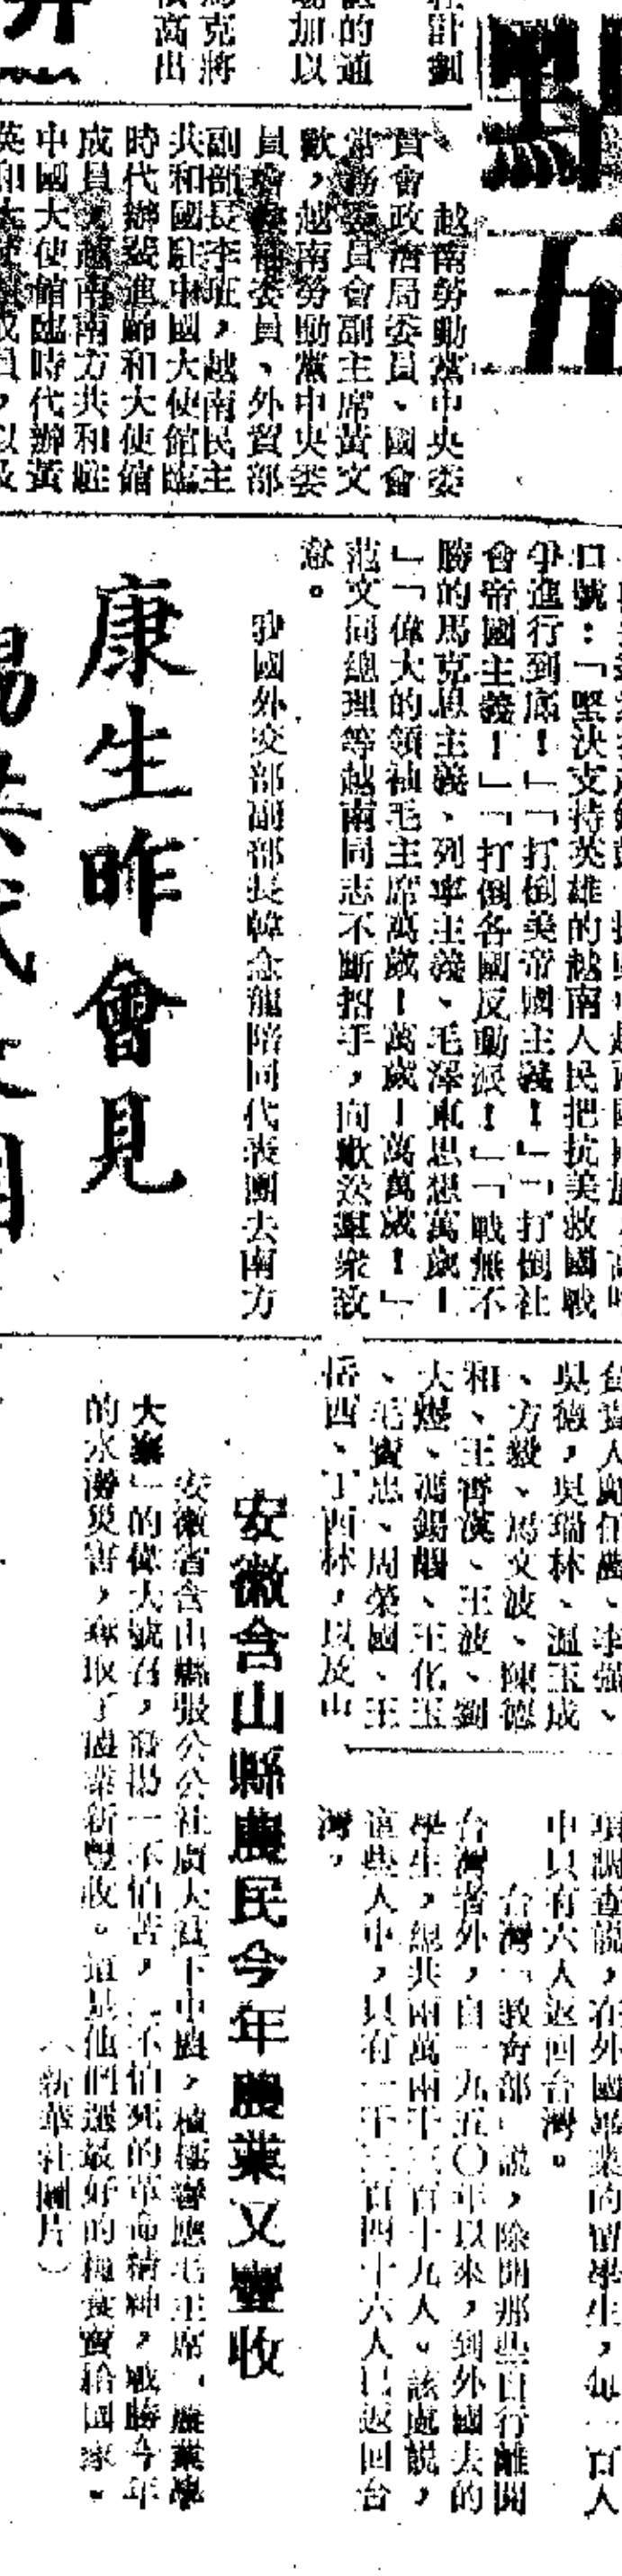 社計劃
的通
加以
馬克將
高出
點
五
越南勞動黨中央委
員會政治局委員、國會
常務委員會副主席黃文
歡，越南勞動黨中央委
員會候補委員、外貿部
副部長李班，越南民主
共和國駐中國大使館臨
時代辦裴進帥和大使館
成員，越南南方共和駐
中國大使館臨時代辦黃
成員，以及
口號：「堅決支持英雄的越南人民把抗美救國戰
爭進行到底！」「打倒美帝國主義！」「打倒社
會帝國主義！」「打倒各國反動派！」「戰無不
勝的馬克思主義、列寧主義、毛澤東思想萬歲！
」「偉大的領袖毛主席萬歲！萬歲！萬萬歲！」
范文同總理等越南同志不斷招手，向歡送羣衆致
意。
我國外交部副部長韓念龍陪同代表團去南方
康生昨會見
吳德，吳瑞林、溫玉成
、方毅、馬文波、陳德
和、王波、劉
大煜、馮鉉、王化玉
、周榮國、王
西林，以及山
項調查說，在外國畢業的留學生，每一百人
中只有六人返回台灣。
台灣「教育部」說，除開那些自行離開
台灣省外，自一九五〇年以來，到外國去的
學生，總共兩萬兩千三百十九人。該處說，
這些人中，只有一千三百四十六人已返回台
灣。
安徽含山縣農民今年農業又豐收
安徽省含山縣張公公社廣大貧下中農，積極響應毛主席「農業學
大寨」的偉大號召，發揚一不怕苦，二不怕死的革命精神，戰勝今年
的水澇災害，奪取了農業新豐收。這是他們選最好的糧食賣給國家。
（新華社圖片）